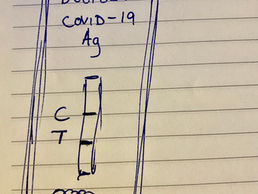 COVID-19
Ag
C
T